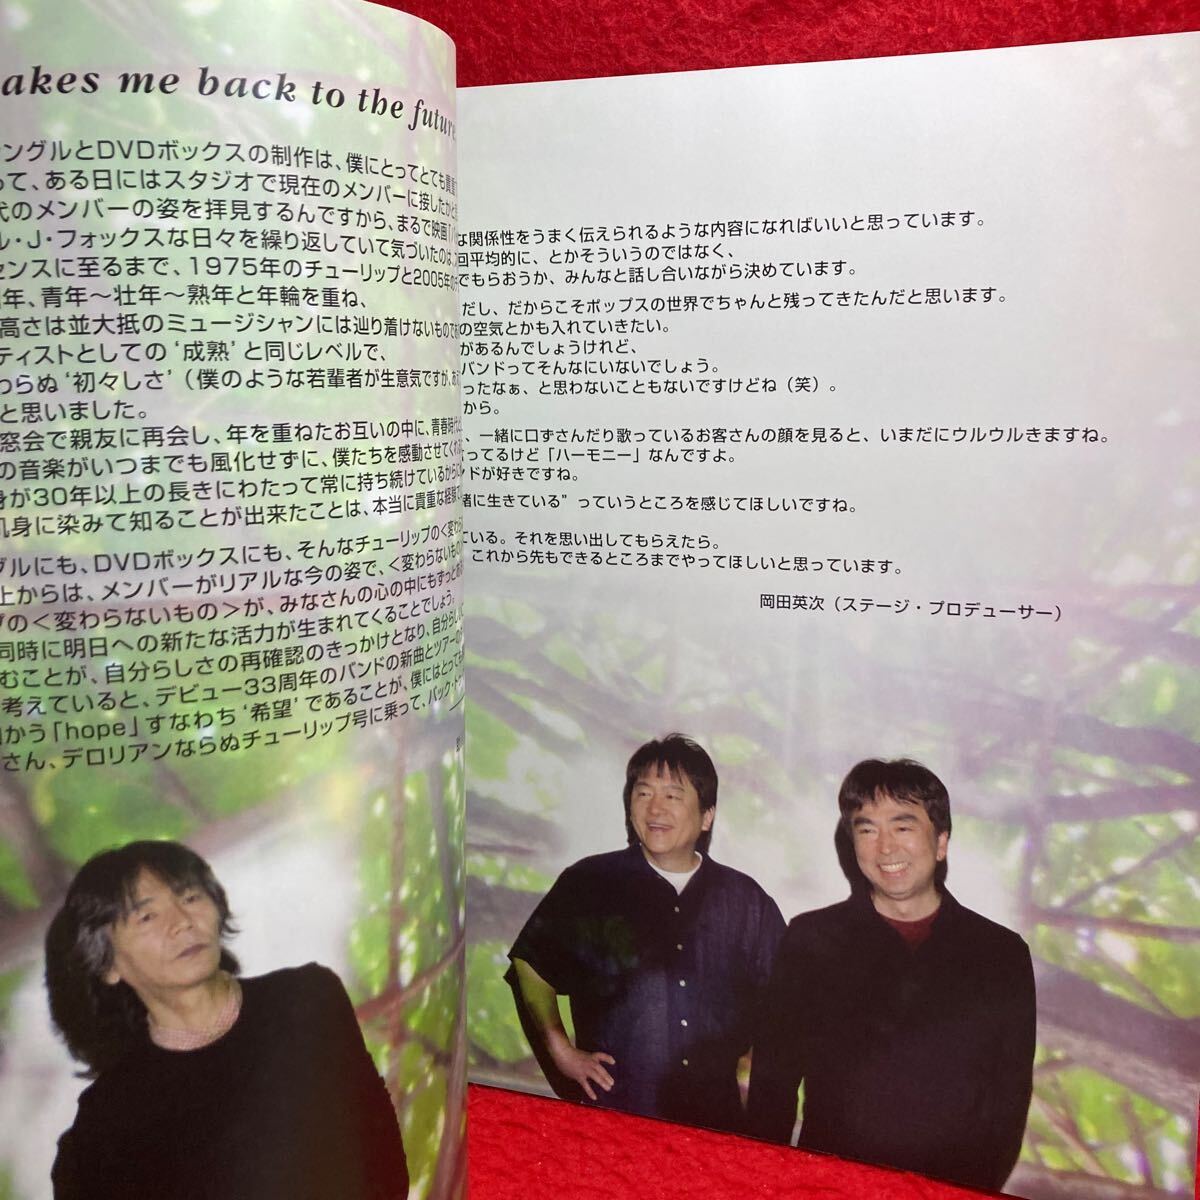 akes me back to the future.
ングルとDVDボックスの制作は、僕にとってとても貴重
って、ある日にはスタジオで現在のメンバーに接したかと
代のメンバーの姿を拝見するんですから、まるで映画
ル・J・フォックスな日々を繰り返していて気づいたのは、
センスに至るまで、1975年のチューリップと2005年の
年、青年〜壮年〜熟年と年輪を重ね、
高さは並大抵のミュージシャンには辿り着けないもので
ティストとしての‘成熟’と同じレベルで、
わらぬ‘初々しさ’（僕のような若輩者が生意気ですが、
と思いました。
窓会で親友に再会し、年を重ねたお互いの中に、青春時
の音楽がいつまでも風化せずに、僕たちを感動させてくれ
身が30年以上の長きにわたって常に持ち続けているから
肌身に染みて知ることが出来たことは、本当に貴重な経験
グルにも、DVDボックスにも、そんなチューリップの＜変わら
上からは、メンバーがリアルな今の姿で、＜変わらないもの
プの＜変わらないもの＞が、みなさんの心の中にもずっと
同時に明日への新たな活力が生まれてくることでしょう。
むことが、自分らしさの再確認のきっかけとなり、自分らし
考えていると、デビュー33周年のバンドの新曲とツアーの
向かう「hope」すなわち‘希望’であることが、僕にはとっても
さん、デロリアンならぬチューリップ号に乗って、バック・トゥ
な関係性をうまく伝えられるような内容になればいいと思っています。
回平均的に、とかそういうのではなく、
でもらおうか、みんなと話し合いながら決めています。
だし、だからこそポップスの世界でちゃんと残ってきたんだと思います。
の空気とかも入れていきたい。
があるんでしょうけれど、
バンドってそんなにいないでしょう。
ったなぁ、と思わないこともないですけどね（笑）。
から。
、一緒に口ずさんだり歌っているお客さんの顔を見ると、いまだにウルウルきますね。
ってるけど「ハーモニー」なんですよ。
ドが好きですね。
緒に生きている”っていうところを感じてほしいですね。
ている。それを思い出してもらえたら。
これから先もできるところまでやってほしいと思っています。
岡田英次（ステージ・プロデューサー）